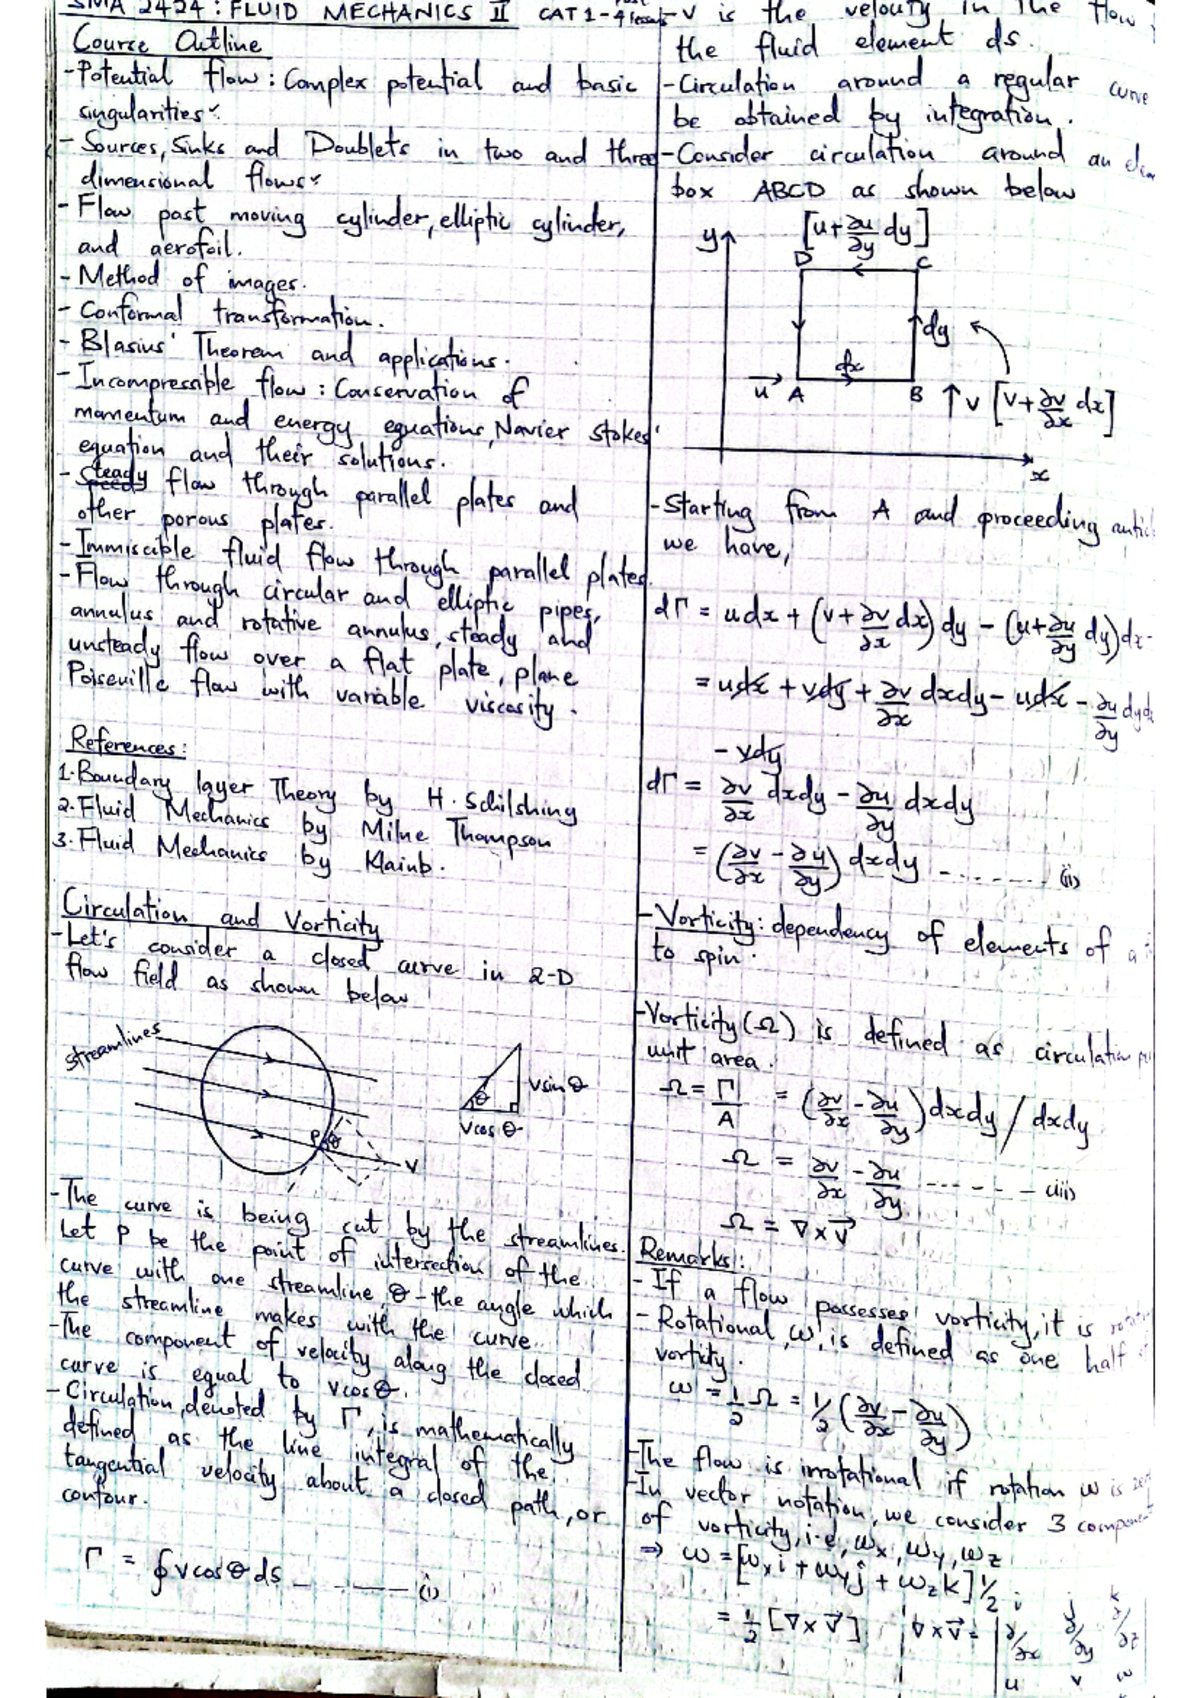 SMA 2424: FLUID MECHANICS II CAT 1-4
Course Outline
-Potential flow: Complex potential and basic
singularities
- Sources, Sinks and Doublets in two and three
dimensional flows
- Flow past moving cylinder, elliptic cylinder,
and aerofoil.
- Method of images.
- Conformal transformation.
- Blasius' Theorem and applications.
- Incompressible flow: Conservation of
momentum and energy equations, Navier Stokes'
equation and their solutions.
- Steady flow through parallel plates and
other porous plates.
- Immiscible fluid flow through parallel plates.
- Flow through circular and elliptic pipes,
annulus and rotative annulus, steady and
unsteady flow over a flat plate, plane
Poiseville flow with variable viscosity.
References:
1. Boundary layer Theory by H. Schilshing
2. Fluid Mechanics by Milne Thompson
3. Fluid Mechanics by Klainb.
Circulation and Vorticity
- Let's consider a closed curve in 2-D
flow field as shown below
streamlines
P θ
V
θ
Vsinθ
Vcosθ
- The curve is being cut by the streamlines.
Let P be the point of intersection of the
curve with one streamline, θ - the angle which
the streamline makes with the curve.
- The component of velocity along the closed
curve is equal to vcosθ.
- Circulation, denoted by Γ, is mathematically
defined as the line integral of the
tangential velocity about a closed path, or
contour.
Γ = ∮vcosθ ds ------ (i)
- V is the velocity in the flow
the fluid element ds.
- Circulation around a regular curve
be obtained by integration.
- Consider circulation around an
box ABCD as shown below
y
[u+∂u/∂y dy]
D C
dy
dx
u A B v [v+∂v/∂x dx]
x
- Starting from A and proceeding
we have,
dΓ = udx + (v+∂v/∂x dx)dy - (u+∂u/∂y dy)dx -
= udx + vdy + ∂v/∂x dxdy - udx - ∂u/∂y dydx
- vdy
dΓ = ∂v/∂x dxdy - ∂u/∂y dxdy
= (∂v/∂x - ∂u/∂y) dxdy ------ (ii)
- Vorticity: dependency of elements of a
to spin.
- Vorticity (Ω) is defined as circulation
unit area.
Ω = Γ/A = (∂v/∂x - ∂u/∂y) dxdy / dxdy
Ω = ∂v/∂x - ∂u/∂y ------ (iii)
Ω = ∇×V⃗
Remarks:
- If a flow possesses vorticity, it is
- Rotational, ω, is defined as one half
vorticity.
ω = 1/2 Ω = 1/2 (∂v/∂x - ∂u/∂y)
- The flow is irrotational if rotation ω is
- In vector notation, we consider 3
of vorticity, i.e, ωx, ωy, ωz
⇒ ω = [ωx i + ωy j + ωz k] 1/2
= 1/2 [∇×V⃗] ∇×V⃗ =
i j k
∂/∂x ∂/∂y ∂/∂z
u v w